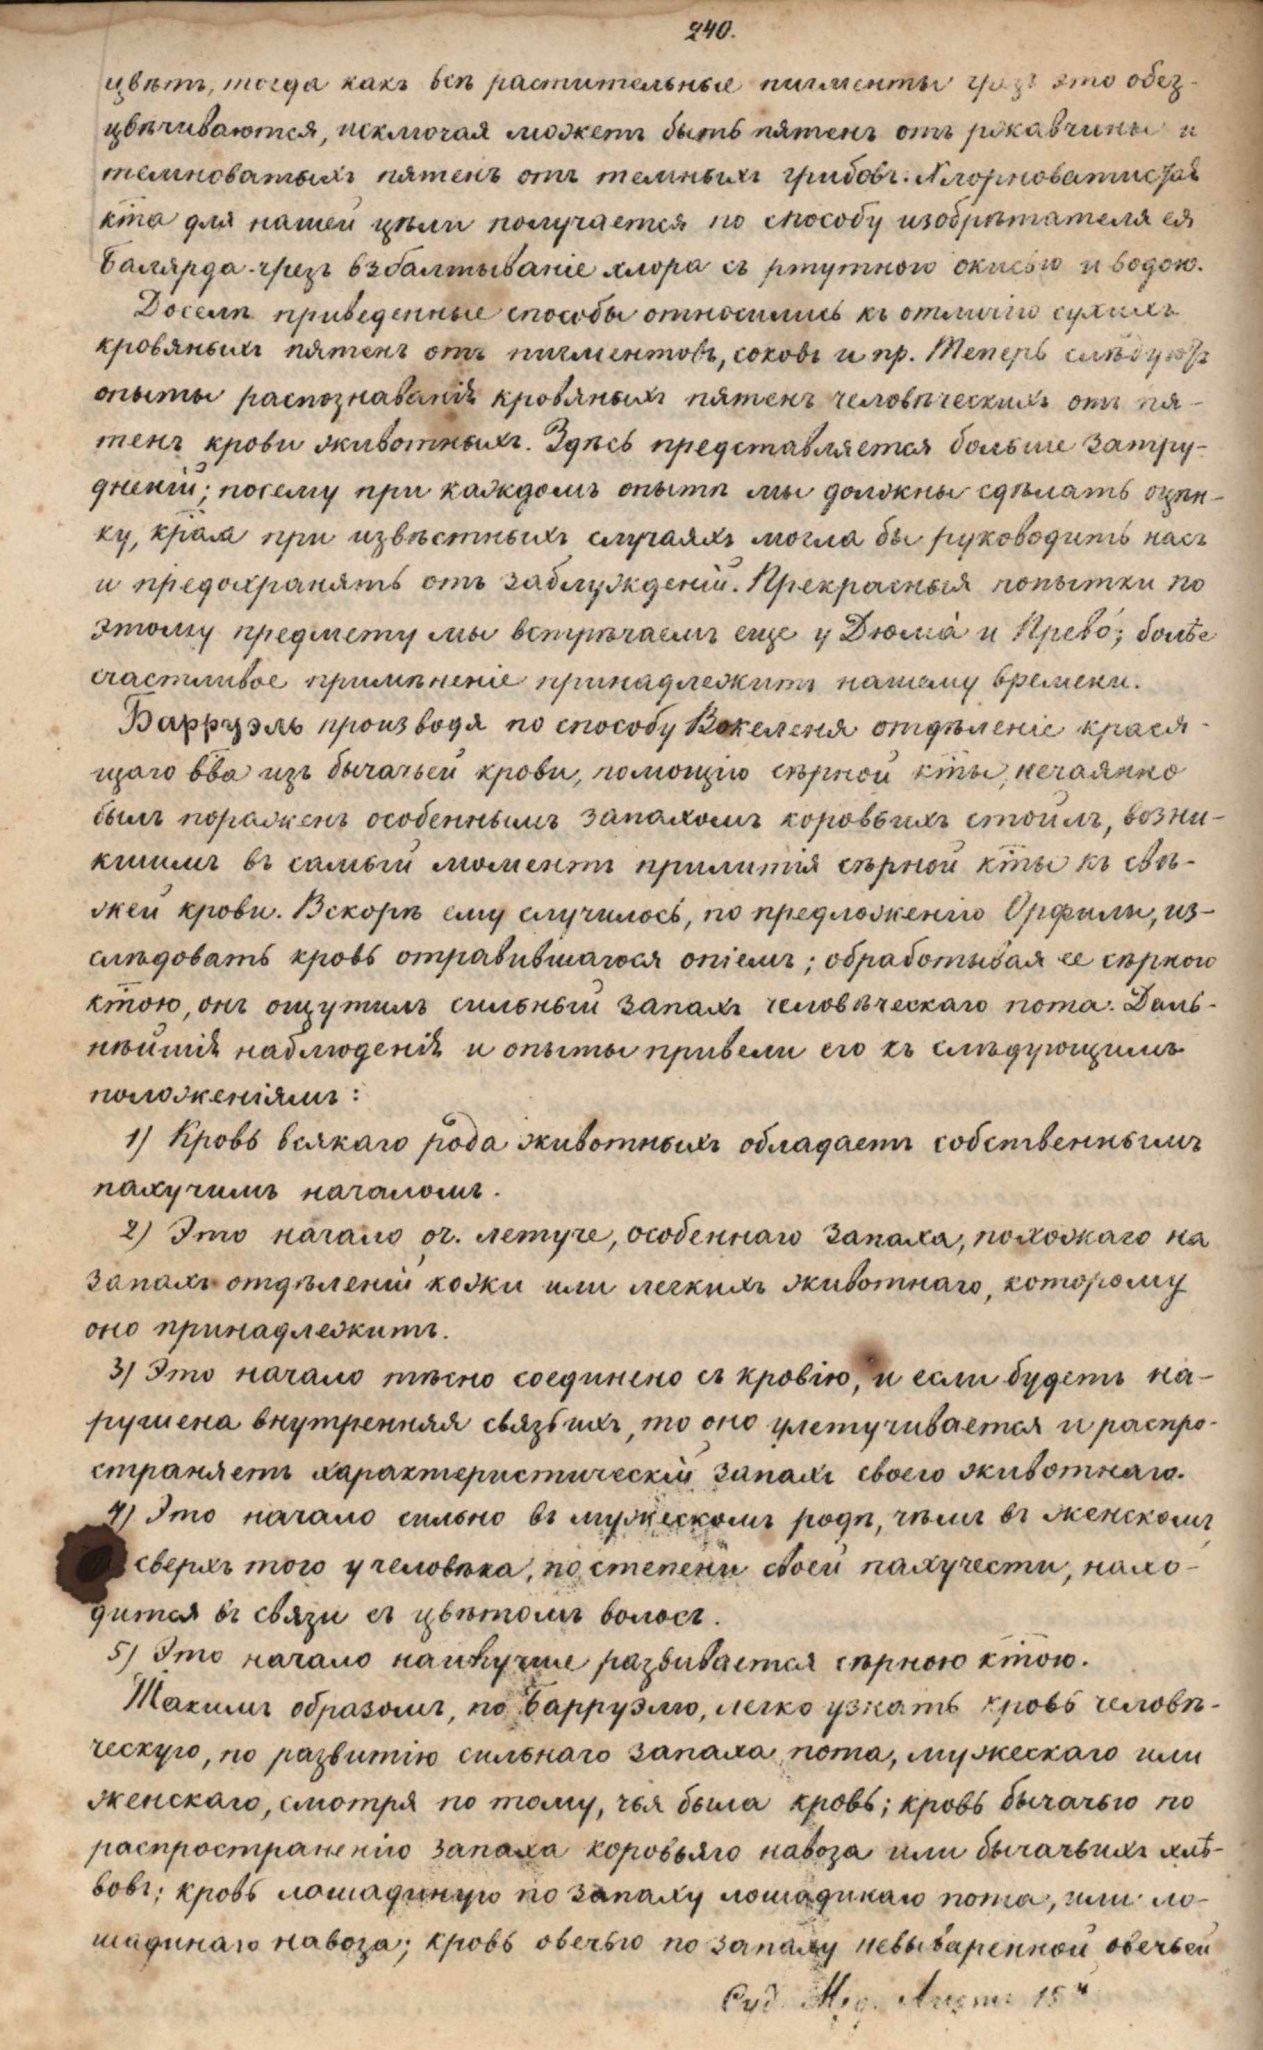 240.
цвѣтъ, тогда какъ всѣ растительные пигменты чрезъ это обез-
цвѣчиваются, исключая можетъ быть пятенъ отъ ржавчины и
темноватыхъ пятенъ отъ темныхъ грибовъ. Хлорноватистая
кта для нашей цѣли получается по способу изобрѣтателя ея
Балярда чрезъ взбалтываніе хлора съ ртутною окисью и водою.
Доселѣ приведенные способы относились къ отличію сухихъ
кровяныхъ пятенъ отъ пигментовъ, соковъ и пр. Теперь слѣдуютъ
опыты распознаванія кровяныхъ пятенъ человѣческихъ отъ пя-
тенъ крови животныхъ. Здѣсь представляется больше затру-
дненій; посему при каждомъ опытѣ мы должны сдѣлать оцѣн-
ку, края при извѣстныхъ случаяхъ могла бы руководить насъ
и предохранять отъ заблужденій. Прекрасныя попытки по
этому предмету мы встрѣчаемъ еще у Дюмà и Прево́; болѣе
счастливое примѣненіе принадлежитъ нашему времени.
Барруэль производя по способу Вокеленя отдѣленіе крася-
щаго вва изъ бычачьей крови, помощію сѣрной кты, нечаянно
былъ пораженъ особеннымъ запахомъ коровьихъ стойлъ, возни-
кшимъ въ самый моментъ прилитія сѣрной кты къ свѣ-
жей крови. Вскорѣ ему случилось, по предложенію Орфилы, из-
слѣдовать кровь отравившагося опіемъ; обработывая ее сѣрною
ктою, онъ ощутилъ сильный запахъ человѣческаго пота. Даль-
нѣйшія наблюденія и опыты привели его къ слѣдующимъ
положеніямъ:
1) Кровь всякаго рода животныхъ обладаетъ собственнымъ
пахучимъ началомъ.
2) Это начало оч. летуче, особеннаго запаха, похожаго на
запахъ отдѣленій кожи или легкихъ животнаго, которому
оно принадлежитъ.
3) Это начало тѣсно соединено съ кровію, и если будетъ на-
рушена внутренняя связь ихъ, то оно улетучивается и распро-
страняетъ характеристическій запахъ своего животнаго.
4) Это начало сильно въ мужескомъ родѣ, чѣмъ въ женскомъ,
сверхъ того у человѣка, по степени своей пахучести, нахо-
дится въ связи съ цвѣтомъ волосъ.
5) Это начало наилучше развивается сѣрною ктою.
Такимъ образомъ, по Барруэлю, легко узнать кровь человѣ-
ческую, по развитію сильнаго запаха пота, мужескаго или
женскаго, смотря по тому, чья была кровь; кровь бычачью по
распространенію запаха коровьяго навоза или бычачьихъ хлѣ-
вовъ; кровь лошадиную по запаху лошадинаго пота, или ло-
шадинаго навоза; кровь овечью по запаху невываренной овечьей
Суд. Мед. Листъ 15й